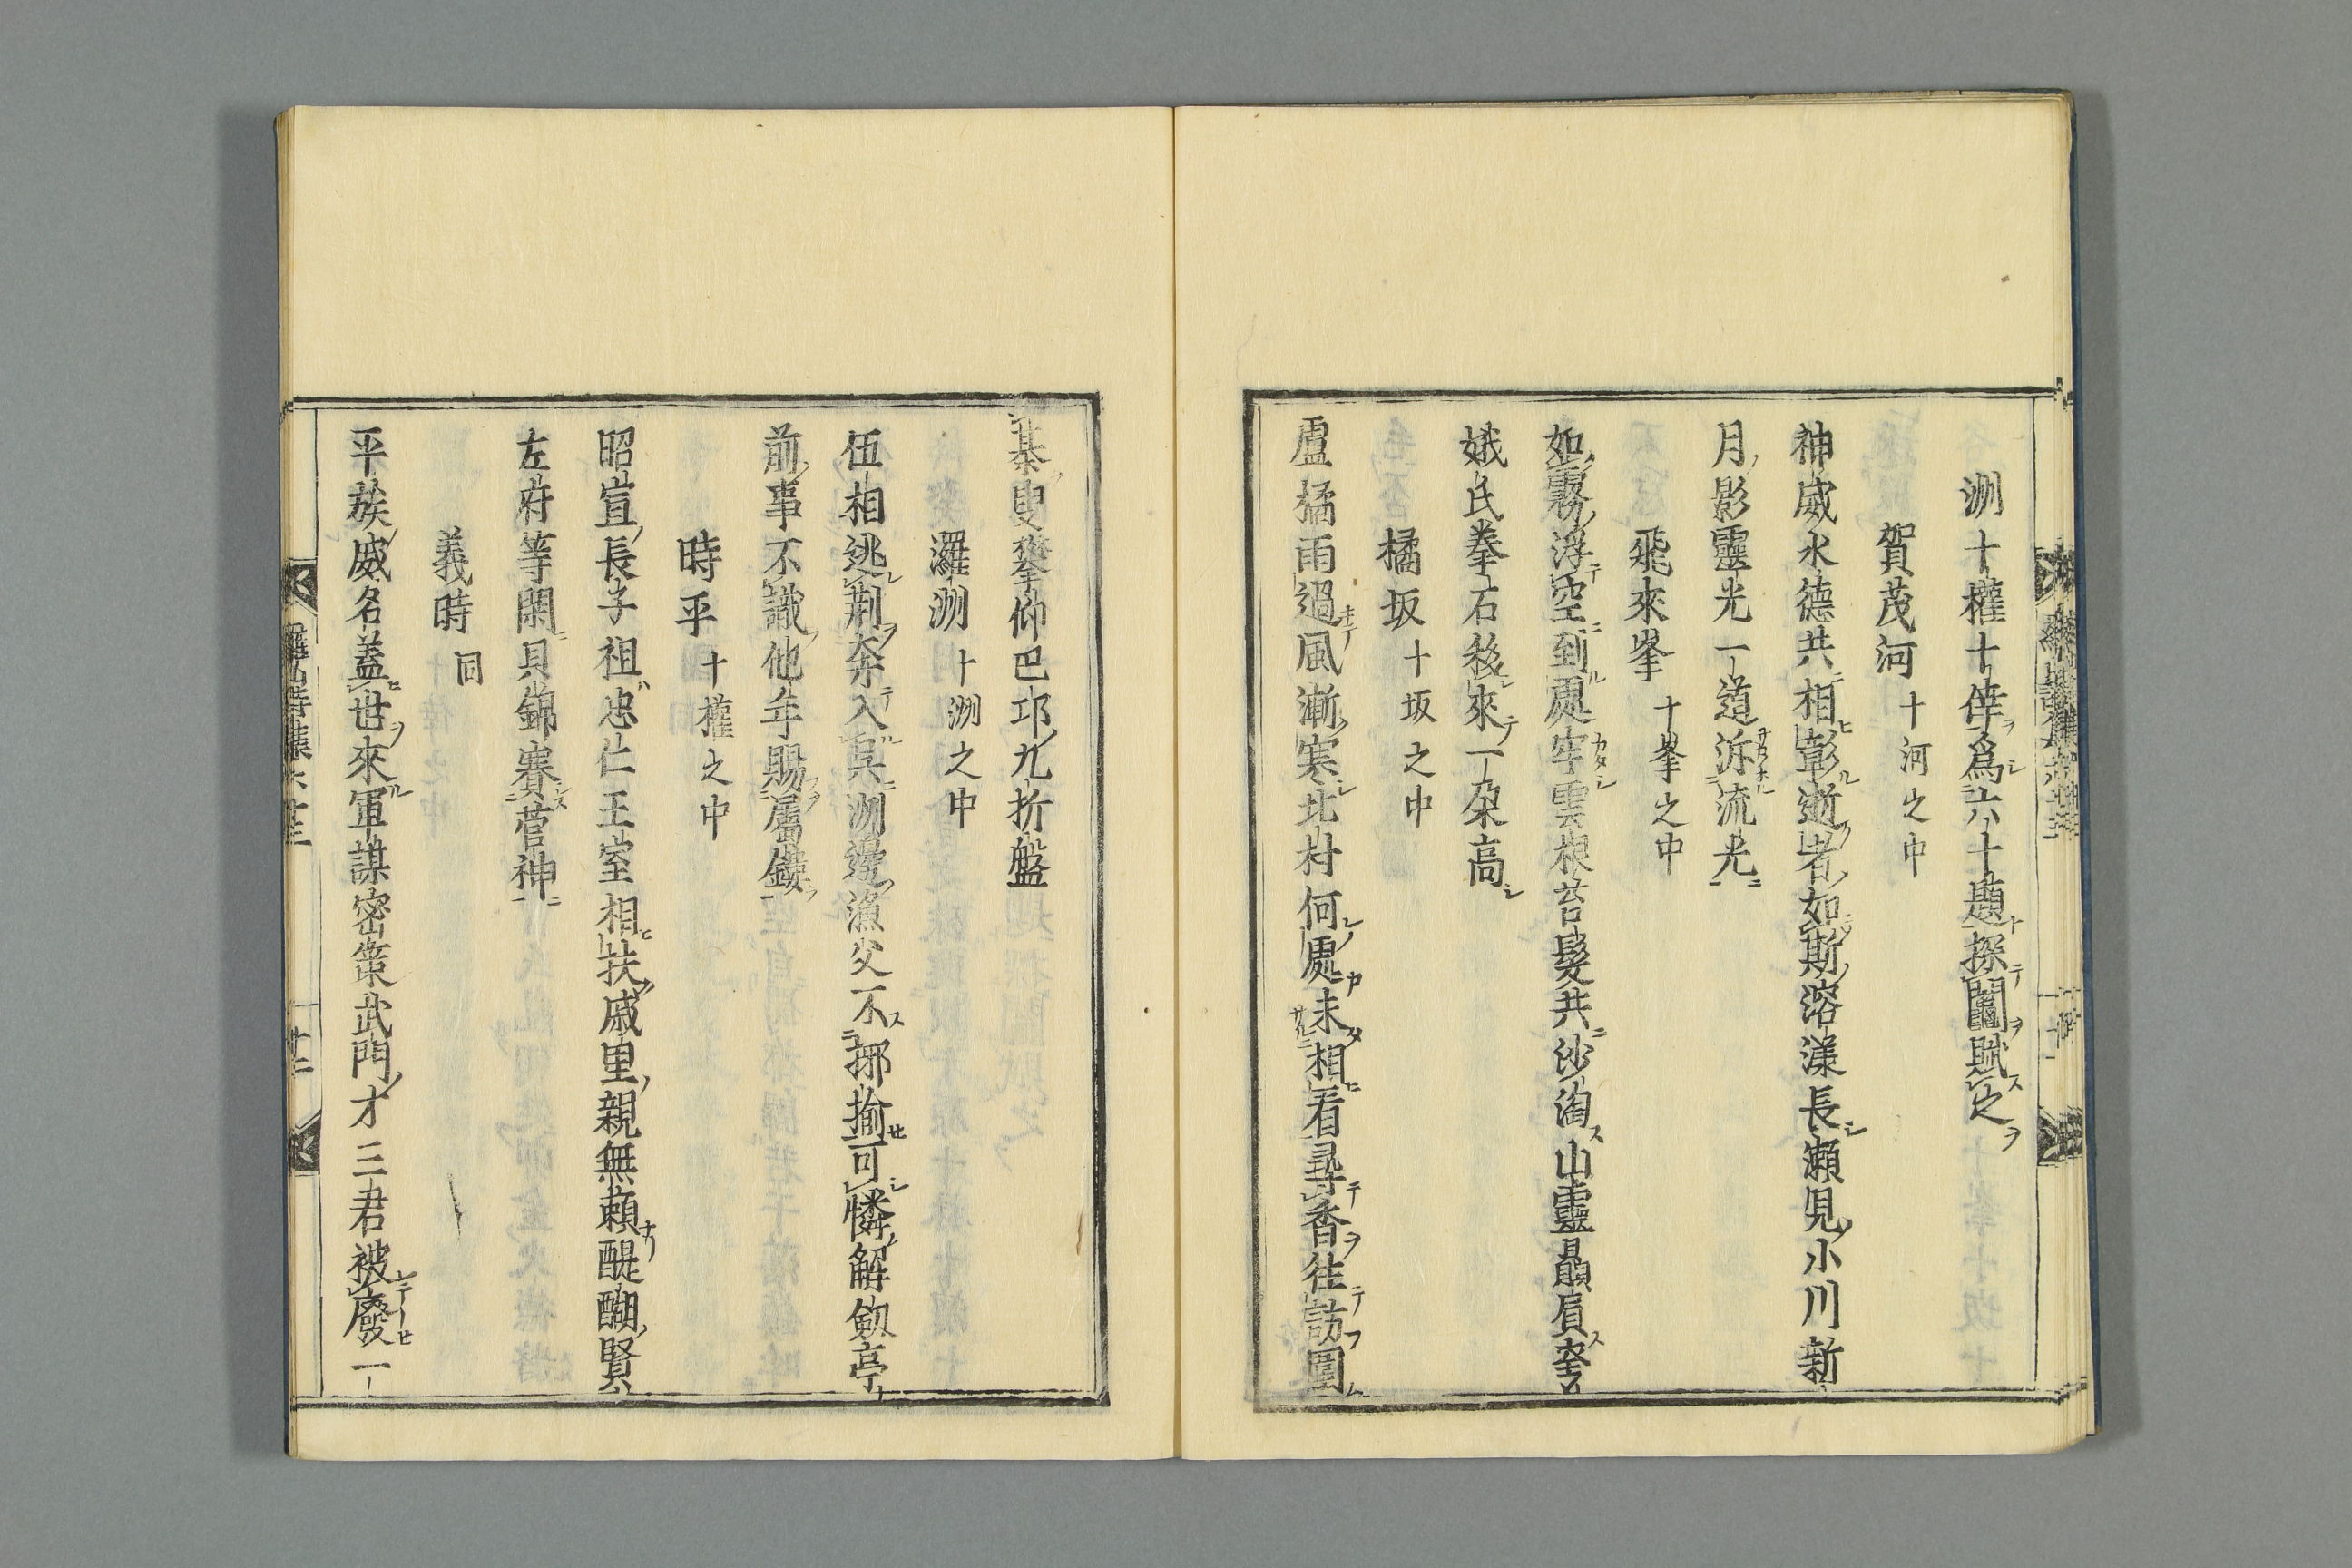 洲十權十倖爲六十題探鬮賦之
賀茂河 十河之中
神威水德共相彰逝者如斯溶漾長瀨見小川新
月影靈光一道泝流光
飛來峯 十峯之中
如霧浮空到處牢雲根苔髮共沙淘山靈贔屓奎
娥氏拳石移來一朶高
橘坂 十坂之中
盧橘雨過風漸寒北村何處未相看尋香往訪園
棊叟攀仰巴邛九折盤
灘洲 十洲之中
伍相逃荆奔入吳洲邊漁父不揶揄可憐解劔亭
前事不識他年賜屬鏤
時平 十權之中
昭宣長子祖忠仁王室相扶戚里親無賴醍醐賢
左府等閑貝錦賽菅神
義時 同
平族威名蓋世來軍謀密策武門才三君被廢一